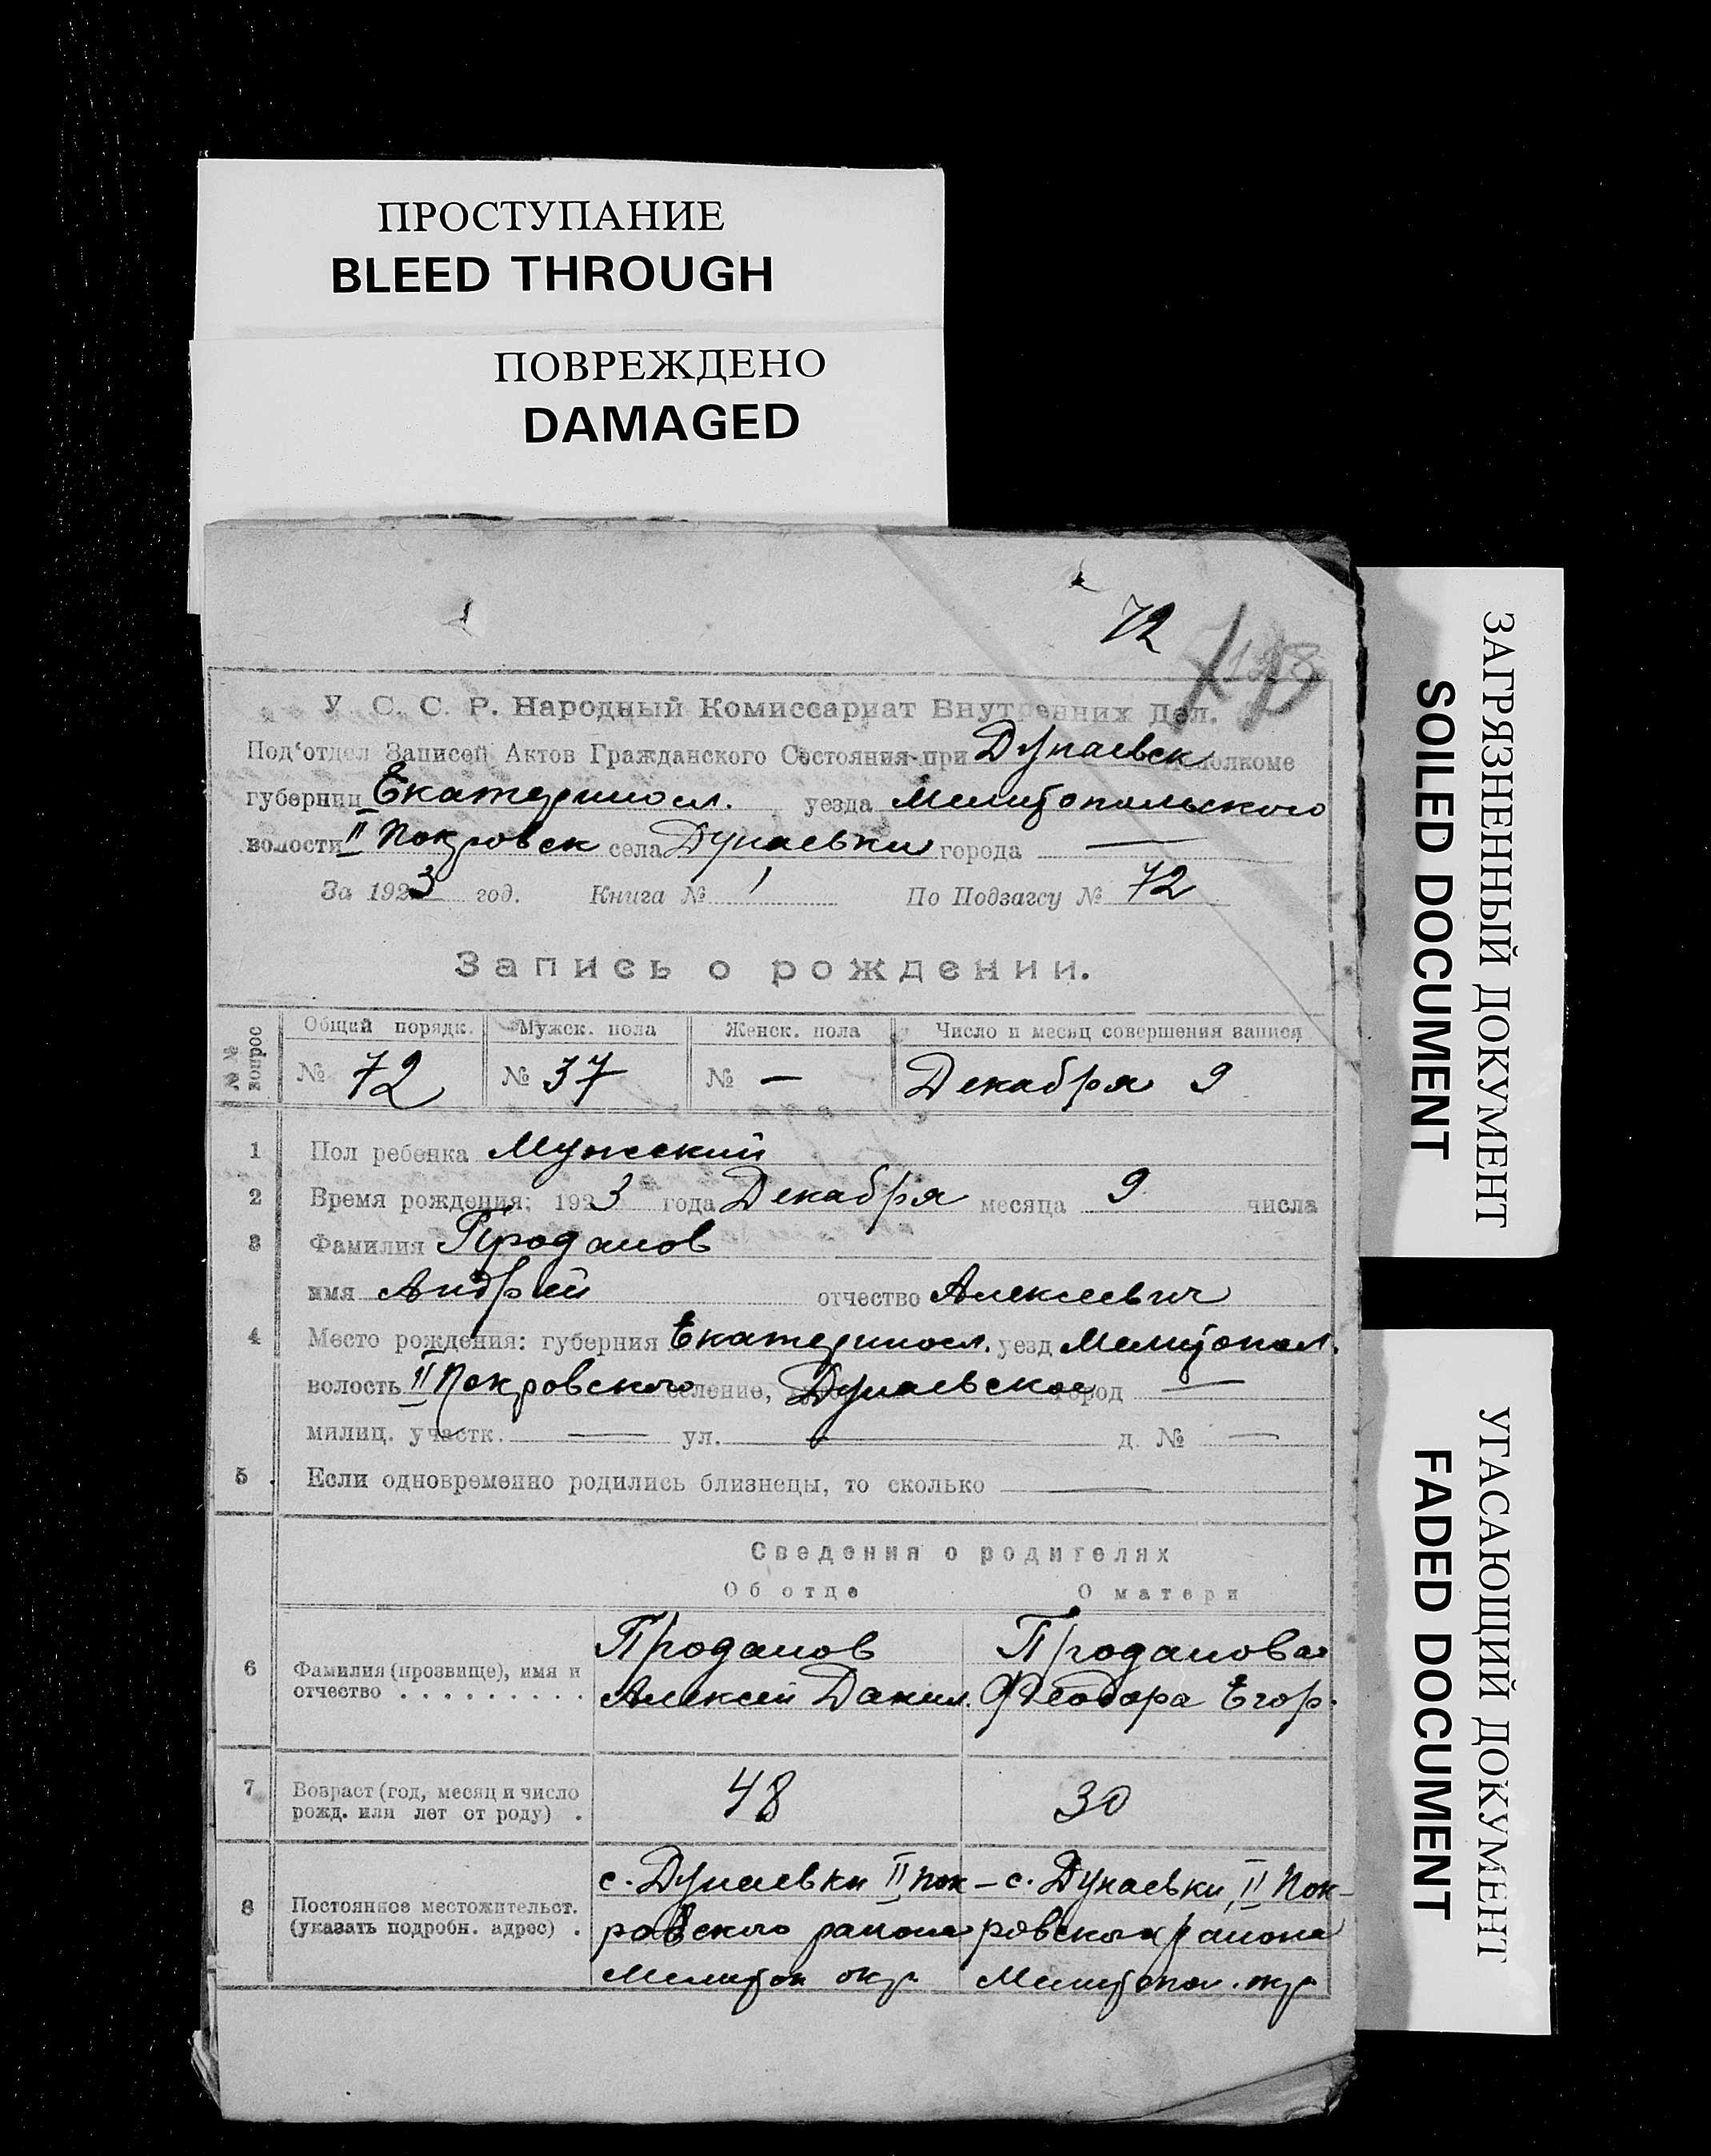 ПРОСТУПАНИЕ
BLEED THROUGH
ПОВРЕЖДЕНО
DAMAGED
72
У. С. С. Р. Народный Комиссариат Внутренних Дел.
Под'отдел Записей Актов Гражданского Состояния при Дунаевск Исполкоме
губернии Екатериносл. уезда Мелитопольского
волости II Покровск села Дунаевки города —
За 1923 год. Книга № 1 По Подзагсу № 72
Запись о рождении.
№№ вопрос
Общий порядк. Мужск. пола Женск. пола Число и месяц совершения записи
№ 72 № 37 № — Декабря 9
1 Пол ребенка Мужский
2 Время рождения: 1923 года Декабря месяца 9 числа
3 Фамилия Проданов
имя Андрей отчество Алексеевич
4 Место рождения: губерния Екатериносл. уезд Мелитопол.
волость II Покровского селение, Дунаевское город —
милиц. участк. — ул. — д. № —
5 Если одновременно родились близнецы, то сколько —
Сведения о родителях
Об отце О матери
6 Фамилия (прозвище), имя и отчество . . . . . . . . .
Проданов
Алексей Данил.
Проданова
Феодора Егор.
7 Возраст (год, месяц и число рожд. или лет от роду) .
48 30
8 Постоянное местожительст. (указать подробн. адрес) .
с. Дунаевки II Пок-
ровского района
Мелитоп окр.
с. Дунаевки, II Пок-
ровского района
Мелитопол. окр.
ЗАГРЯЗНЕННЫЙ ДОКУМЕНТ
SOILED DOCUMENT
УГАСАЮЩИЙ ДОКУМЕНТ
FADED DOCUMENT